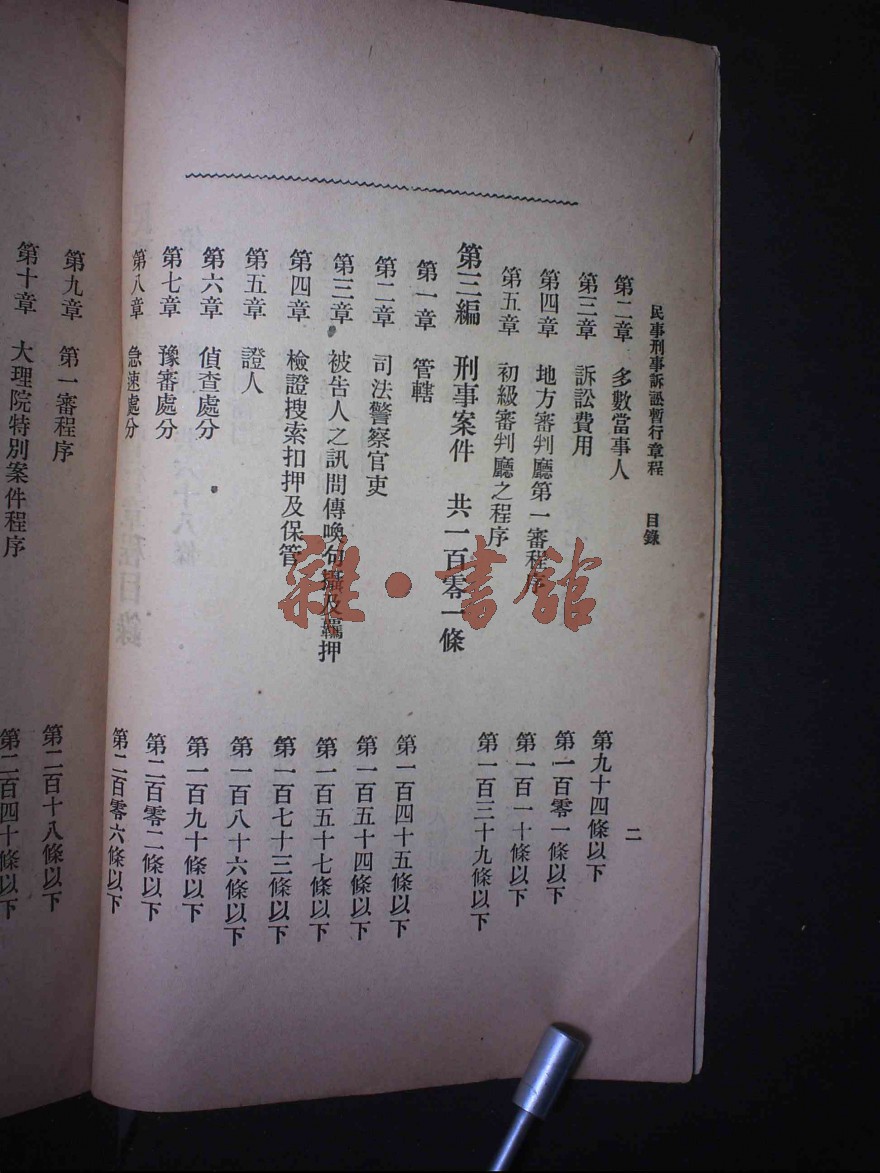 民事刑事訴訟暫行章程 目錄
二
第二章 多數當事人 第九十四條以下
第三章 訴訟費用 第一百零一條以下
第四章 地方審判廳第一審程序 第一百一十條以下
第五章 初級審判廳之程序 第一百三十九條以下
第三編 刑事案件 共一百零一條
第一章 管轄 第一百四十五條以下
第二章 司法警察官吏 第一百五十四條以下
第三章 被告人之訊問傳喚句攝及羈押 第一百五十七條以下
第四章 檢證搜索扣押及保管 第一百七十三條以下
第五章 證人 第一百八十六條以下
第六章 偵查處分 第一百九十條以下
第七章 豫審處分 第二百零二條以下
第八章 急速處分 第二百零六條以下
第九章 第一審程序 第二百十八條以下
第十章 大理院特別案件程序 第二百四十條以下
雜·書館